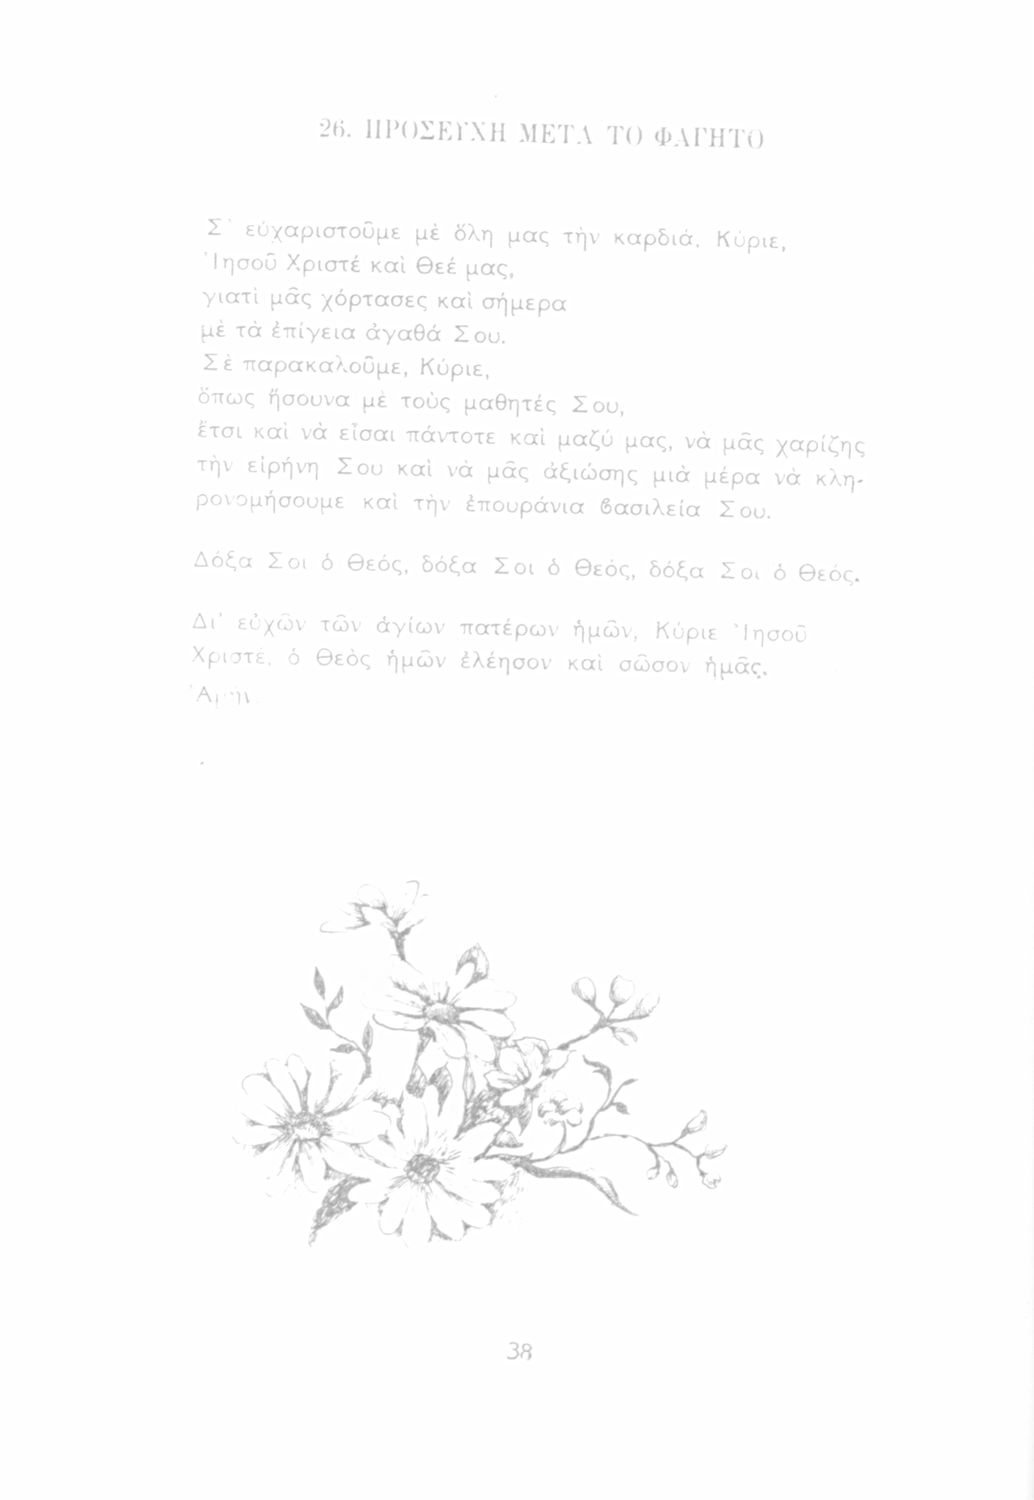 26. ΠΡΟΣΕΥΧΗ ΜΕΤΑ ΤΟ ΦΑΓΗΤΟ
Σ' εὐχαριστοῦμε μὲ ὅλη μας τὴν καρδιά, Κύριε,
Ἰησοῦ Χριστέ καὶ Θεέ μας,
γιατὶ μᾶς χόρτασες καὶ σήμερα
μὲ τὰ ἐπίγεια ἀγαθά Σου.
Σὲ παρακαλοῦμε, Κύριε,
ὅπως ἤσουνα μὲ τοὺς μαθητές Σου,
ἔτσι καὶ νὰ εἶσαι πάντοτε καὶ μαζύ μας, νὰ μᾶς χαρίζης
τὴν εἰρήνη Σου καὶ νὰ μᾶς ἀξιώσης μιὰ μέρα νὰ κλη-
ρονομήσουμε καὶ τὴν ἐπουράνια βασιλεία Σου.
Δόξα Σοι ὁ Θεός, δόξα Σοι ὁ Θεός, δόξα Σοι ὁ Θεός.
Δι' εὐχῶν τῶν ἁγίων πατέρων ἡμῶν, Κύριε Ἰησοῦ
Χριστέ, ὁ Θεὸς ἡμῶν ἐλέησον καὶ σῶσον ἡμᾶς.
Ἀμήν.
38